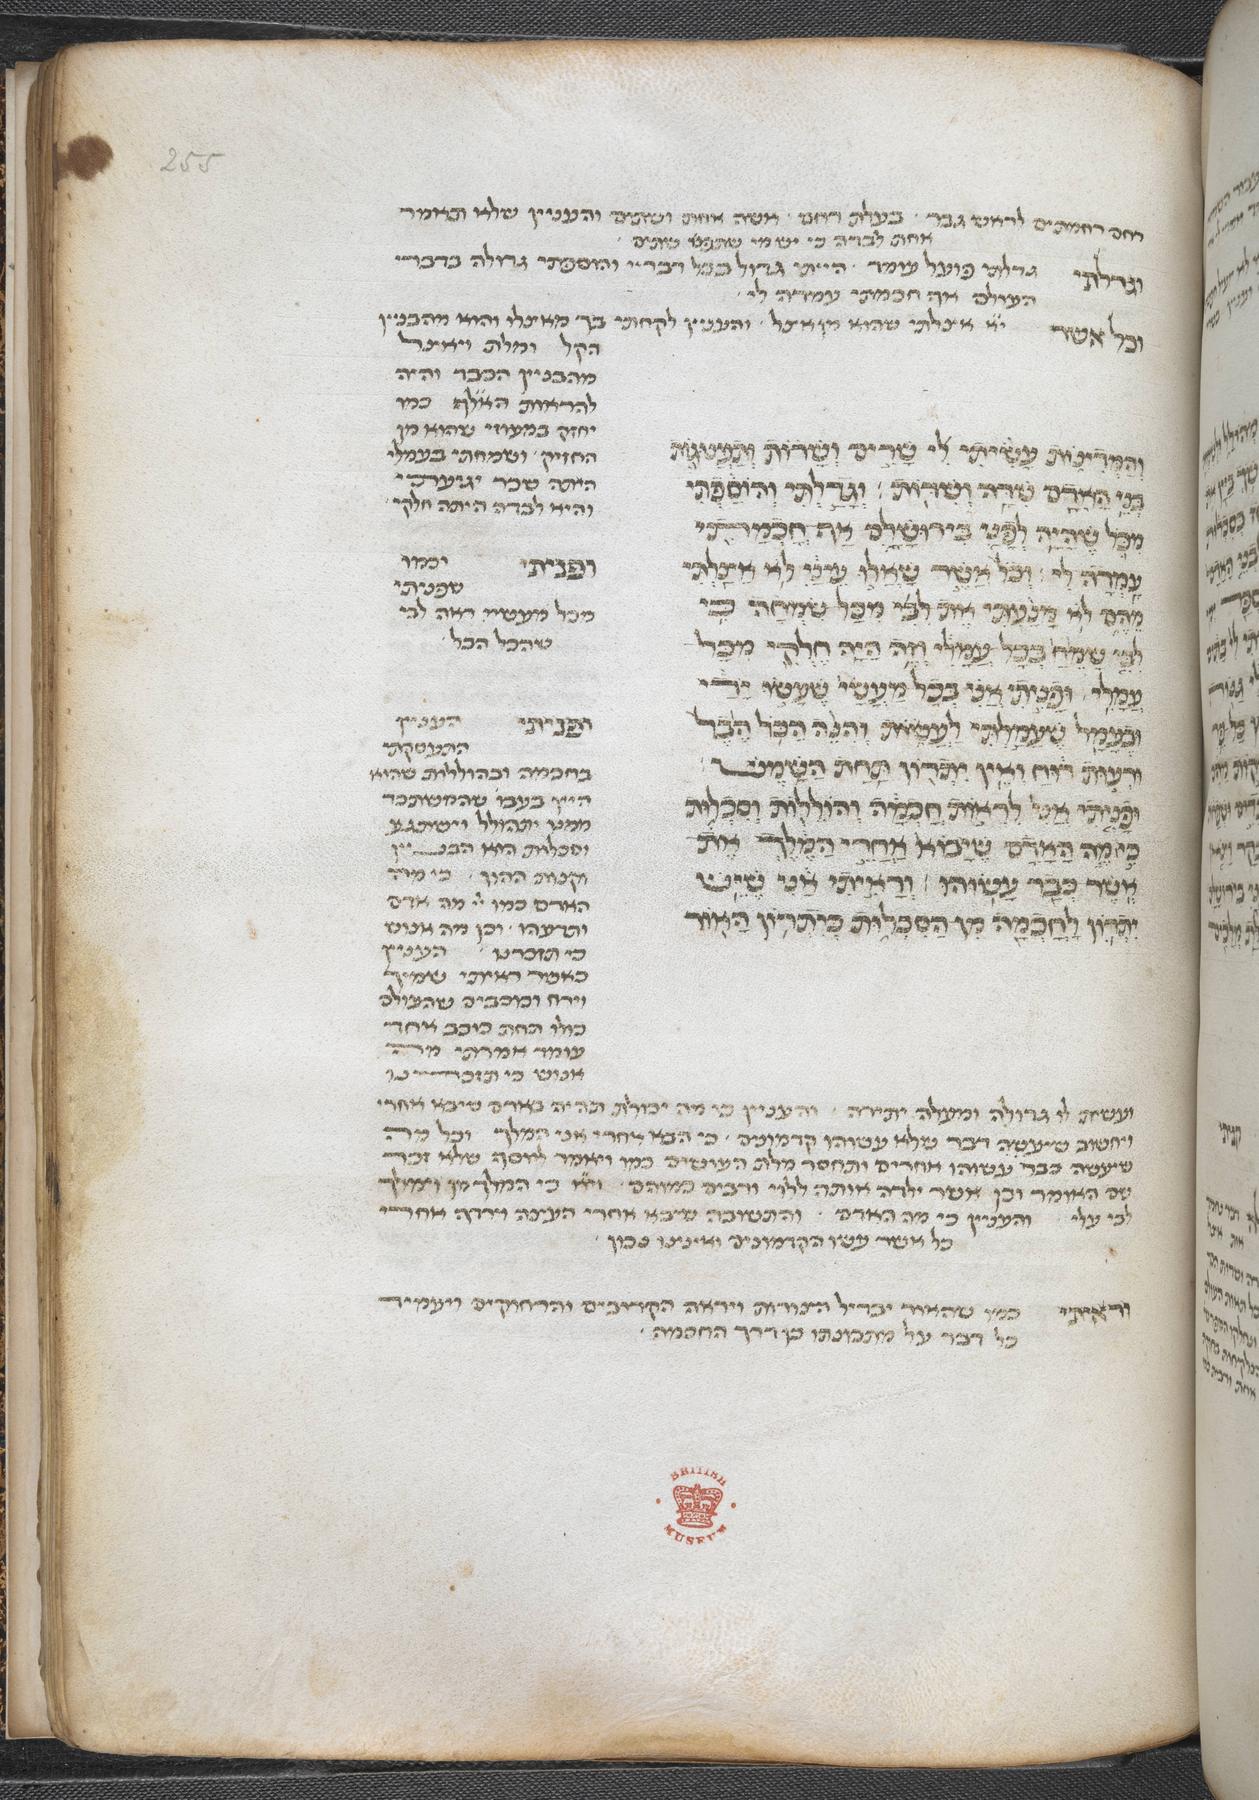 255
רחם רחמתים לראש גבר · בעלת רחם · אשה אחת ושתים והענין שלא תאמר
אחת לבדה כי יש מי שתפש שתים ·
וגדלתי גדלתי פועל עומד · הייתי גדול בכל דבריי והוספתי גדולה בדברי
העולם אף חכמתי עמדה לי ·
וכל אשר י״א אצלתי שהוא מן אצל · והענין לקחתי בך מאצלו והוא מהבנין
הקל ומלת ויאצל
מהבנין הכבד והיה
להראות האל״ף כמו
יחזק במעוזי שהוא מן
החזיק · ושמחתי בעמלי
היתה שכר יגיעתי
והיא לבדה היתה חלקי ·
וְהַמְּדִינוֹת עָשִׂיתִי לִי שָׁרִים וְשָׁרוֹת וְתַעֲנֻגוֹת
בְּנֵי הָאָדָם שִׁדָּה וְשִׁדּוֹת · וְגָדַלְתִּי וְהוֹסַפְתִּי
מִכֹּל שֶׁהָיָה לְפָנַי בִּירוּשָׁלִָם אַף חָכְמָתִי
עָמְדָה לִּי · וְכֹל אֲשֶׁר שָׁאֲלוּ עֵינַי לֹא אָצַלְתִּי
מֵהֶם לֹא מָנַעְתִּי אֶת לִבִּי מִכָּל שִׂמְחָה כִּי
לִבִּי שָׂמֵחַ בְּכָל עֲמָלִי וְזֶה הָיָה חֶלְקִי מִכָּל
עֲמָלִי · וּפָנִיתִי אֲנִי בְּכָל מַעֲשַׂי שֶׁעָשׂוּ יָדַי
וּבֶעָמָל שֶׁעָמַלְתִּי לַעֲשׂוֹת וְהִנֵּה הַכֹּל הֶבֶל
וּרְעוּת רוּחַ וְאֵין יִתְרוֹן תַּחַת הַשָּׁמֶשׁ ·
וּפָנִיתִי אֲנִי לִרְאוֹת חָכְמָה וְהוֹלֵלוֹת וְסִכְלוּת
כִּי מֶה הָאָדָם שֶׁיָּבוֹא אַחֲרֵי הַמֶּלֶךְ אֵת
אֲשֶׁר כְּבָר עָשׂוּהוּ · וְרָאִיתִי אֲנִי שֶׁיֵּשׁ
יִתְרוֹן לַחָכְמָה מִן הַסִּכְלוּת כִּיתְרוֹן הָאוֹר
ופניתי וכמו
שפניתי
מכל מעשיי ראה לבי
שהכל הבל ·
ופניתי הענין
התעסקתי
בחכמה ובהוללות שהוא
היין בעבו׳ שהמשתכר
ממנו יתהולל וישתגע
וסכלות הוא הבנין
וקנות ההון · כי מה
האדם כמו יי׳ מה אדם
ותדעהו · וכן מה אנוש
כי תזכרנו · הענין
כאשר ראיתי שמיך
וירח וכוכבים שהעולם
כולו תחת כוכב אחד
עומד אמרתי מה
אנוש כי תזכרנו
ועשית לו גדולה ומעלה יתירה · והענין כי מה יכולת תהיה באדם שיבא אחרי
ויחשוב שיעשה דבר שלא עשוהו קדמונים · כי הבא אחרי אני המלך וכל מה
שיעשה כבר עשוהו אחרים ותחסר מלת העושים כמו ויאמר ליוסף שלא זכר
שם האומר וכן אשר ילדה אותה ללוי ורבים כמוהם · וי״א כי המלך מן וימלך
לבי עלי והענין כי מה האדם · והתשובה שיבא אחרי העצה וירדף אחרי
כל אשר עשו הקדמונים ואיננו נכון ·
וראיתי כמו שהאור יבדיל הצורות ויראה הקרובים והרחוקים ויעמיד
כל דבר על מתכונתו כן דרך החכמה ·
BRITISH
MUSEUM